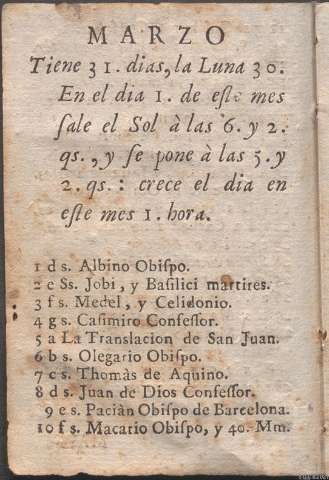 MARZO
Tiene 31. dias, la Luna 30.
En el dia 1. de este mes
sale el Sol à las 6. y 2.
qs., y se pone à las 5. y
2. qs.: crece el dia en
este mes 1. hora.
1 d s. Albino Obispo.
2 e Ss. Jobi, y Basilici martires.
3 f s. Medel, y Celidonio.
4 g s. Casimiro Confessor.
5 a La Translacion de San Juan.
6 b s. Olegario Obispo.
7 c s. Thomàs de Aquino.
8 d s. Juan de Dios Confessor.
9 e s. Paciàn Obispo de Barcelona.
10 f s. Macario Obispo, y 40. Mm.